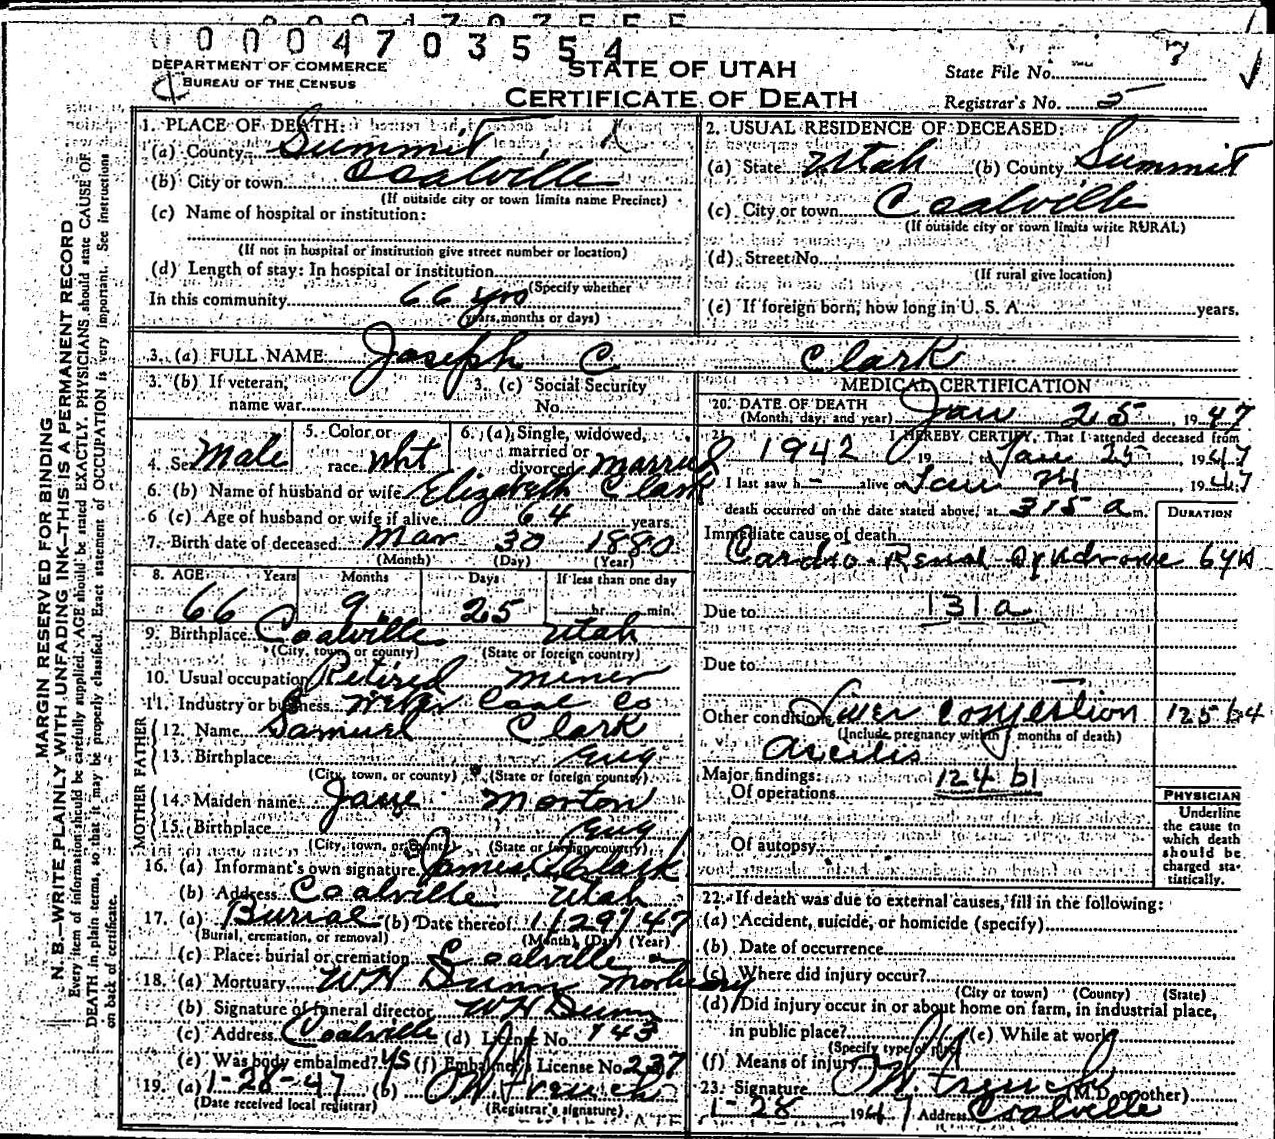 0004703554
DEPARTMENT OF COMMERCE
BUREAU OF THE CENSUS
STATE OF UTAH
CERTIFICATE OF DEATH
State File No.
Registrar's No. 5
MARGIN RESERVED FOR BINDING
N. B.—WRITE PLAINLY WITH UNFADING INK—THIS IS A PERMANENT RECORD
Every item of information should be carefully supplied. AGE should be stated EXACTLY. PHYSICIANS should state CAUSE OF
DEATH in plain terms, so that it may be properly classified. Exact statement of OCCUPATION is very important. See instructions
on back of certificate.
1. PLACE OF DEATH:
(a) County Summit
(b) City or town Coalville
(If outside city or town limits name Precinct)
(c) Name of hospital or institution:
(If not in hospital or institution give street number or location)
(d) Length of stay: In hospital or institution
(Specify whether
In this community 66 yrs
years, months or days)
2. USUAL RESIDENCE OF DECEASED:
(a) State Utah (b) County Summit
(c) City or town Coalville
(If outside city or town limits write RURAL)
(d) Street No.
(If rural give location)
(e) If foreign born, how long in U. S. A. years.
3. (a) FULL NAME Joseph C Clark
3. (b) If veteran, name war
3. (c) Social Security No.
4. Sex Male
5. Color or race Wht
6. (a) Single, widowed, married or divorced Married
6. (b) Name of husband or wife Elizabeth Clark
6 (c) Age of husband or wife if alive 64 years
7. Birth date of deceased Mar 30 1880
(Month) (Day) (Year)
8. AGE Years Months Days If less than one day
66 9 25 hr. min.
9. Birthplace Coalville Utah
(City, town, or county) (State or foreign country)
10. Usual occupation Retired miner
11. Industry or business Weber Coal Co
FATHER
12. Name Samuel Clark
13. Birthplace Eng
(City, town, or county) (State or foreign country)
MOTHER
14. Maiden name Jane Morton
15. Birthplace Eng
(City, town, or county) (State or foreign country)
16. (a) Informant's own signature James C Clark
(b) Address Coalville Utah
17. (a) Burial (b) Date thereof 1/29/47
(Burial, cremation, or removal) (Month) (Day) (Year)
(c) Place: burial or cremation Coalville
18. (a) Mortuary W H Dunn Mortuary
(b) Signature of funeral director W H Dunn
(c) Address Coalville (d) License No. 143
(e) Was body embalmed? ys (f) Embalmer's License No. 237
19. (a) 1-28-47 (b) O W French
(Date received local registrar) (Registrar's signature)
MEDICAL CERTIFICATION
20. DATE OF DEATH
(Month, day, and year) Jan 25, 1947
21. I HEREBY CERTIFY, That I attended deceased from
1942 19 Jan 25 1947
I last saw h- alive on Jan 24 1947
death occurred on the date stated above, at 315 a m.
DURATION
Immediate cause of death
Cardio-Renal Syndrome 6 yrs
Due to 131a
Due to
Other conditions Liver Congestion 125 b4
(Include pregnancy within months of death)
Major findings: 124 b1
Of operations
Of autopsy
PHYSICIAN
Underline
the cause to
which death
should be
charged sta-
tistically.
22. If death was due to external causes, fill in the following:
(a) Accident, suicide, or homicide (specify)
(b) Date of occurrence
(c) Where did injury occur?
(City or town) (County) (State)
(d) Did injury occur in or about home on farm, in industrial place,
in public place? (e) While at work
(Specify type of place)
(f) Means of injury
23. Signature O W French (M.D. or other)
1-28 1947 Address Coalville